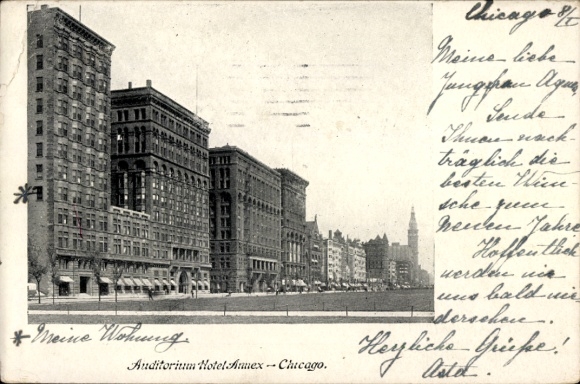 Chicago 8/I
Meine liebe
Jungfrau Agnes,
Sende
Ihnen nach-
träglich die
besten Wün-
sche zum
Neuen Jahre
Hoffentlich
werden wir
uns bald wie
dersehen.
Herzliche Grüße!
Asta.
* Meine Wohnung
Auditorium Hotel Annex - Chicago.